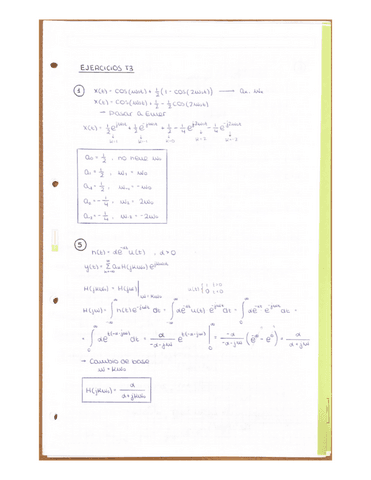 EJERCICIOS T3
① x(t) = cos(ω₀t) + 1/2 (1 - cos(2ω₀t)) —— aₖ, ω₀
x(t) = cos(ω₀t) + 1/2 - 1/2 cos(2ω₀t)
→ Pasar a Euler
x(t) = 1/2 e^{jω₀t} + 1/2 e^{-jω₀t} + 1/2 - 1/4 e^{j2ω₀t} - 1/4 e^{-j2ω₀t}
k=1 k=-1 k=0 k=2 k=-2
a₀ = 1/2 , no tiene ω₀
a₁ = 1/2 , ω₁ = ω₀
a₋₁ = 1/2 , ω₋₁ = -ω₀
a₂ = -1/4 , ω₂ = 2ω₀
a₋₂ = -1/4 , ω₋₂ = -2ω₀
⑤ h(t) = αe^{-αt} u(t) , α > 0
y(t) = ∑_{k=-∞}^{∞} aₖ H(jkω₀) e^{jkω₀t}
H(jkω₀) = H(jω)|_{ω=kω₀}
H(jω) = ∫_{-∞}^{∞} h(t) e^{-jωt} dt = ∫_{-∞}^{∞} αe^{-αt} u(t) · e^{-jωt} dt = ∫_{0}^{∞} αe^{-αt} e^{-jωt} dt =
= ∫_{0}^{∞} αe^{t(-α-jω)} dt = α/(-α-jω) e^{t(-α-jω)} |_{0}^{∞} = -α/(α+jω) (e^{-∞} - e^{0}) = α/(α+jω)
→ Cambio de base
ω = kω₀
H(jkω₀) = α/(α+jkω₀)